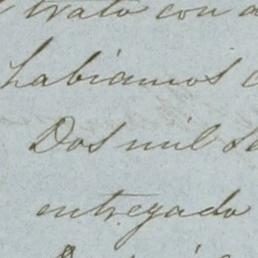 trato con
habiamos
Dos mil se
entregado